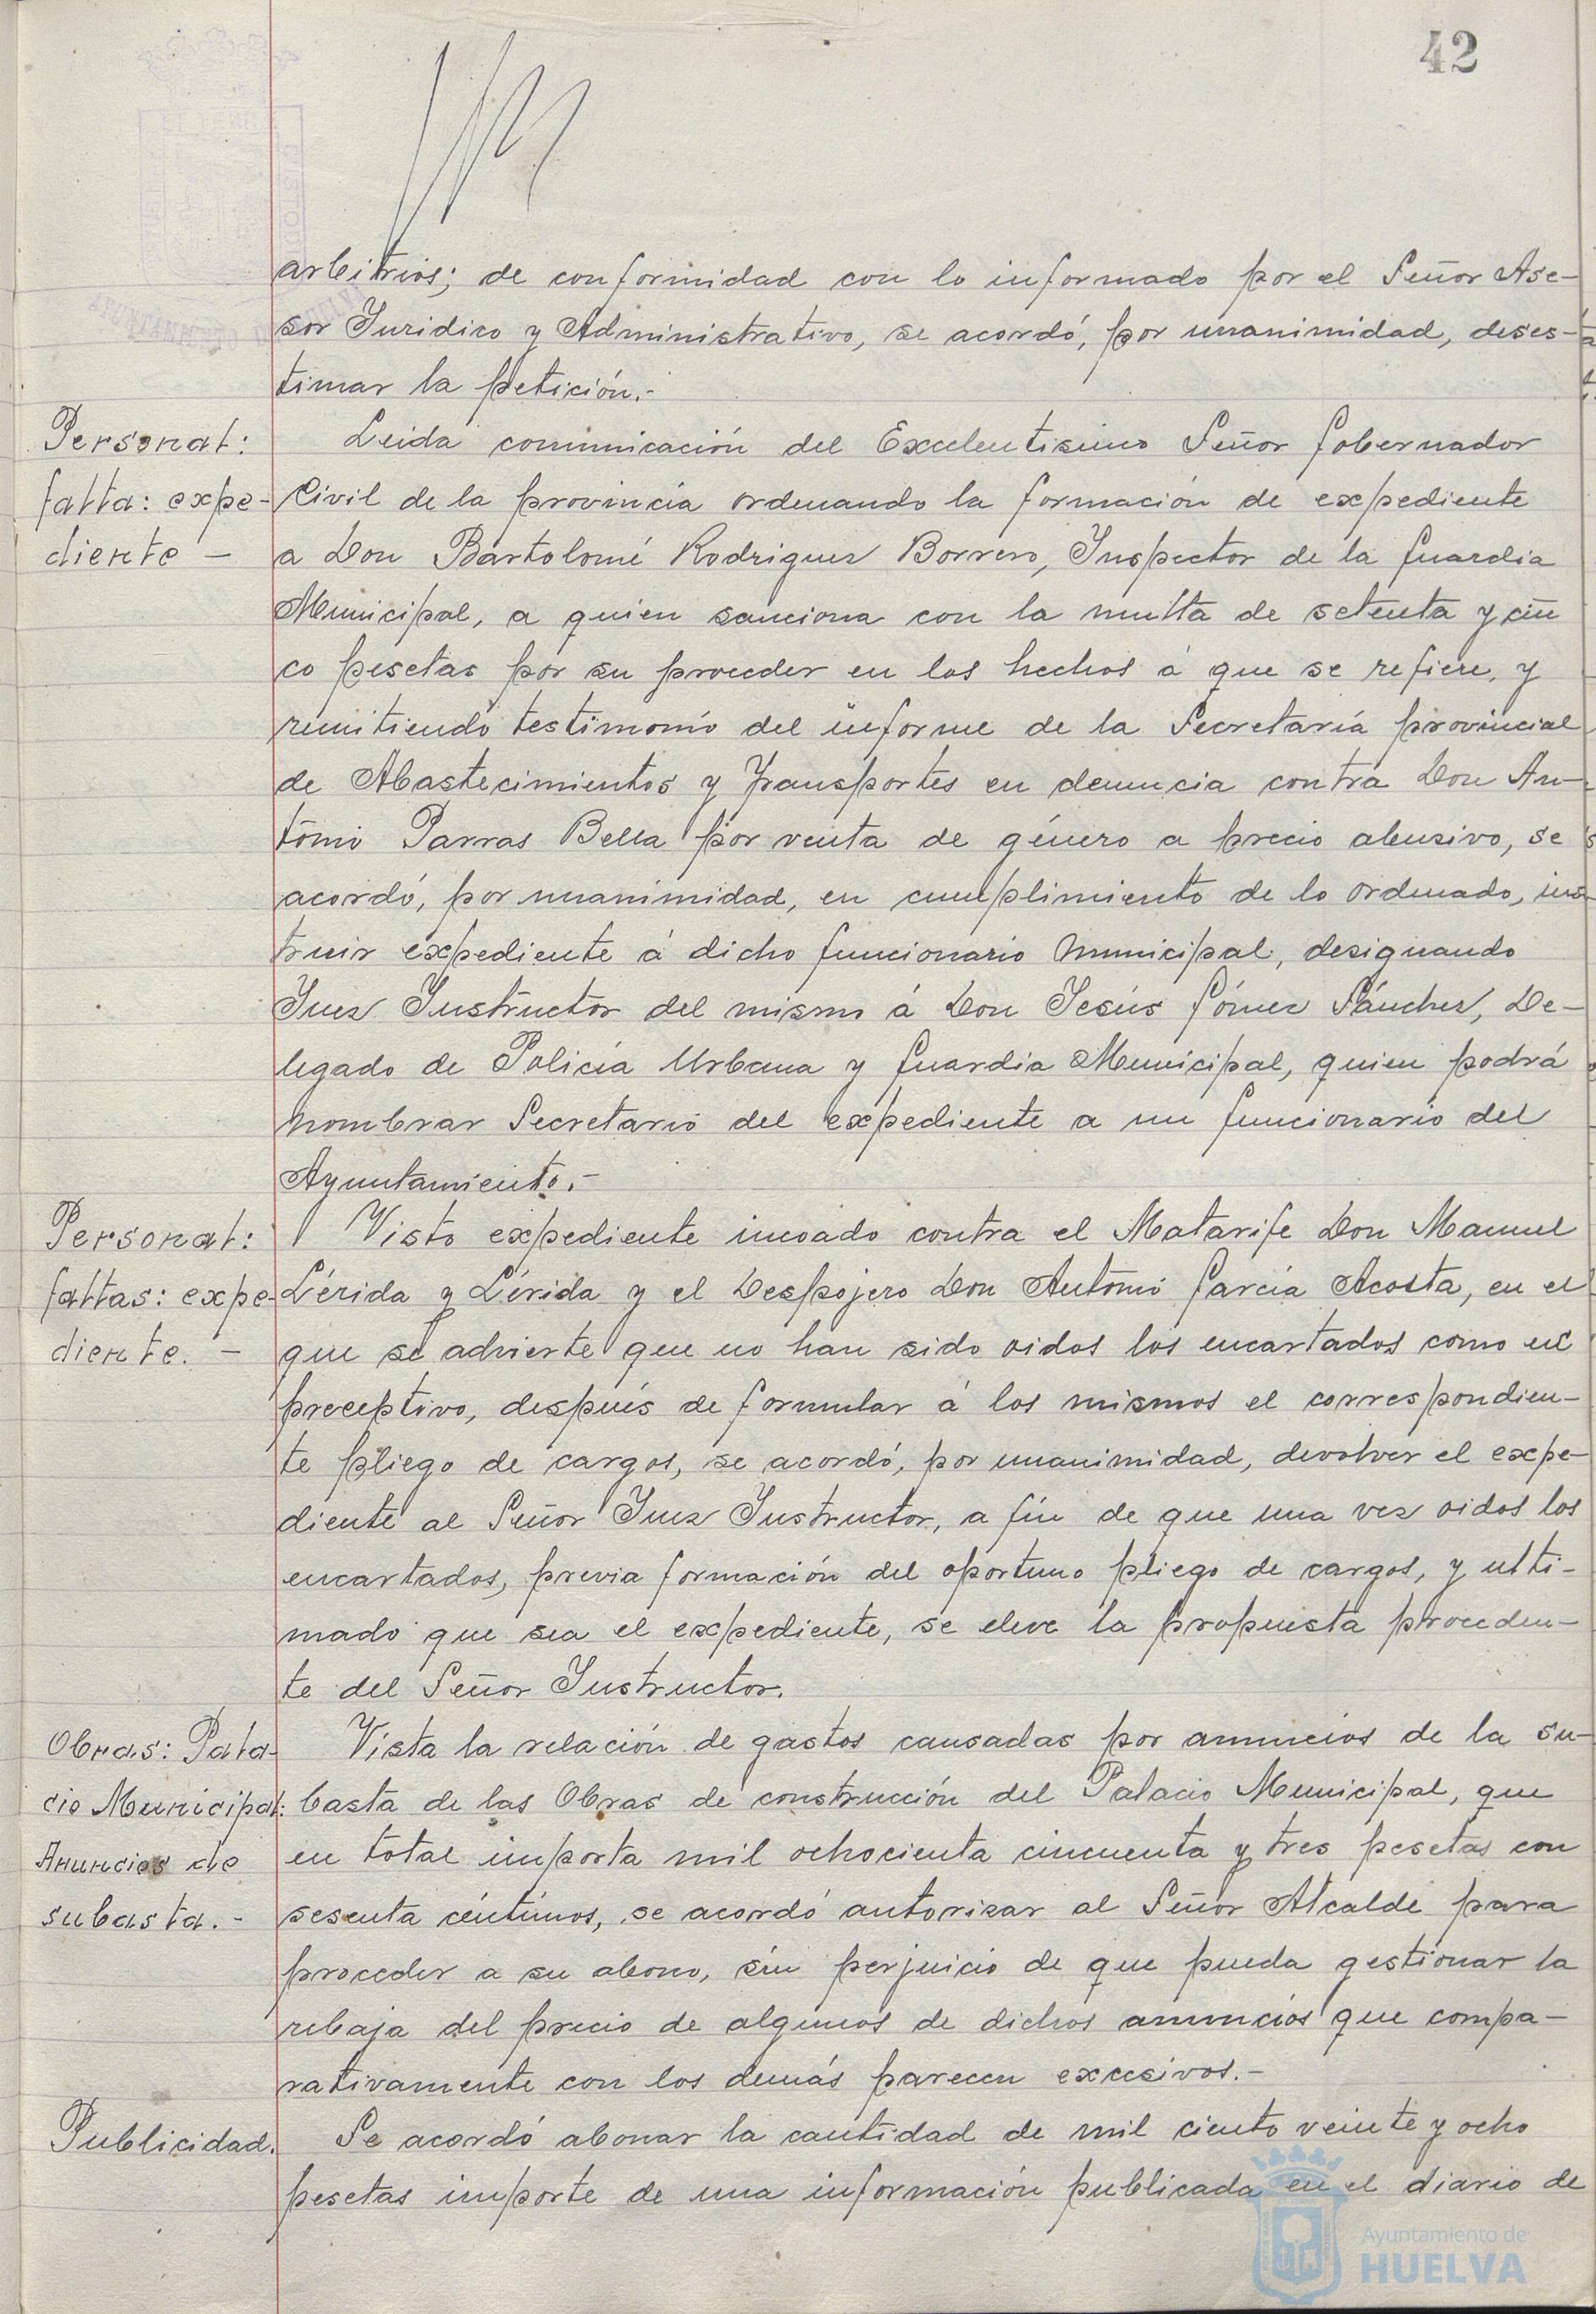 42
arbitrios; de conformidad con lo informado por el Señor Ase-
sor Juridico y Administrativo, se acordó, por unanimidad, deses-
timar la petición.-
Personal:
falta: expe-
diente —
Leida comunicación del Excelentisimo Señor Gobernador
Civil de la provincia ordenando la formación de expediente
a Don Bartolomé Rodriguez Borrero, Inspector de la Guardia
Municipal, a quien sanciona con la multa de setenta y cin
co pesetas por su proceder en los hechos á que se refiere, y
remitiendo testimonio del informe de la Secretaría provincial
de Abastecimientos y Transportes en denuncia contra Don An-
tonio Parras Bella por venta de género a precio abusivo, se
acordó, por unanimidad, en cumplimiento de lo ordenado, ins-
truir expediente á dicho funcionario municipal, designando
Juez Instructor del mismo á Don Jesús Gómez Sánchez, De-
legado de Policía Urbana y Guardia Municipal, quien podrá
nombrar Secretario del expediente a un funcionario del
Ayuntamiento.-
Personal:
faltas: expe-
diente. -
Visto expediente incoado contra el Matarife Don Manuel
Lérida y Lérida y el Despojero Don Antonio García Acosta, en el
que se advierte que no han sido oidos los encartados como es
preceptivo, después de formular á los mismos el correspondien-
te pliego de cargos, se acordó, por unanimidad, devolver el expe-
diente al Señor Juez Instructor, a fin de que una vez oidos los
encartados, previa formación del oportuno pliego de cargos, y ulti-
mado que sea el expediente, se eleve la propuesta proceden-
te del Señor Instructor.
Obras: Pala-
cio Municipal:
Anuncios de
subasta. -
Vista la relación de gastos causadas por anuncios de la su-
basta de las Obras de construcción del Palacio Municipal, que
en total importa mil ochocienta cincuenta y tres pesetas con
sesenta céntimos, se acordó autorizar al Señor Alcalde para
proceder a su abono, sin perjuicio de que pueda gestionar la
rebaja del precio de algunos de dichos anuncios que compa-
rativamente con los demás parecen excesivos.-
Publicidad.
Se acordó abonar la cantidad de mil ciento veinte y ocho
pesetas importe de una información publicada en el diario de
Ayuntamiento de
HUELVA